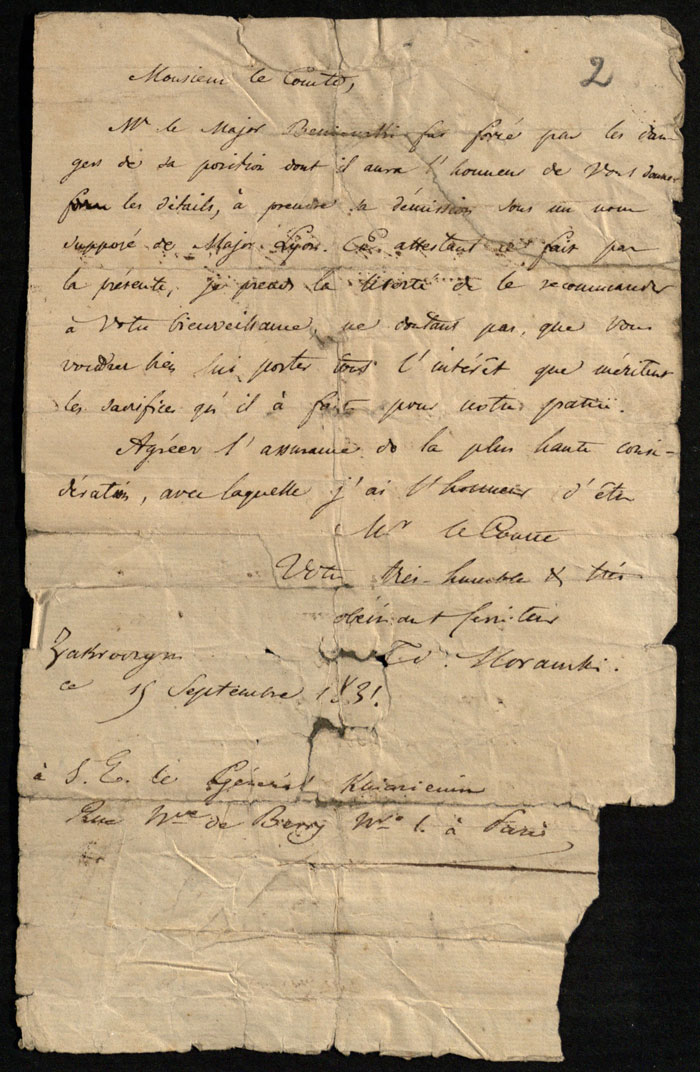 2
Monsieur le Comte,
Mr le Major Beniowski fut forcé par les dan-
gers de sa position dont il aura l'honneur de Vous donner
les détails, à prendre sa démission sous un nom
supposé de Major Lyon. En attestant ce fait par
la présente, je prends la liberté de le recommander
à Votre bienveillance, ne doutant pas, que Vous
voudrez bien lui porter tout l'intérêt que méritent
les sacrifices qu'il à fait pour notre patrie.
Agréez l'assurance de la plus haute consi-
dération, avec laquelle j'ai l'honneur d'être
Mr le Comte
Votre très-humble & très
obéissant serviteur
Td. Morawski.
Zakroczym
ce 15 Septembre 1831.
à S. E. le Général Kniaziewicz
Rue Nve de Berry Nro 1. à Paris